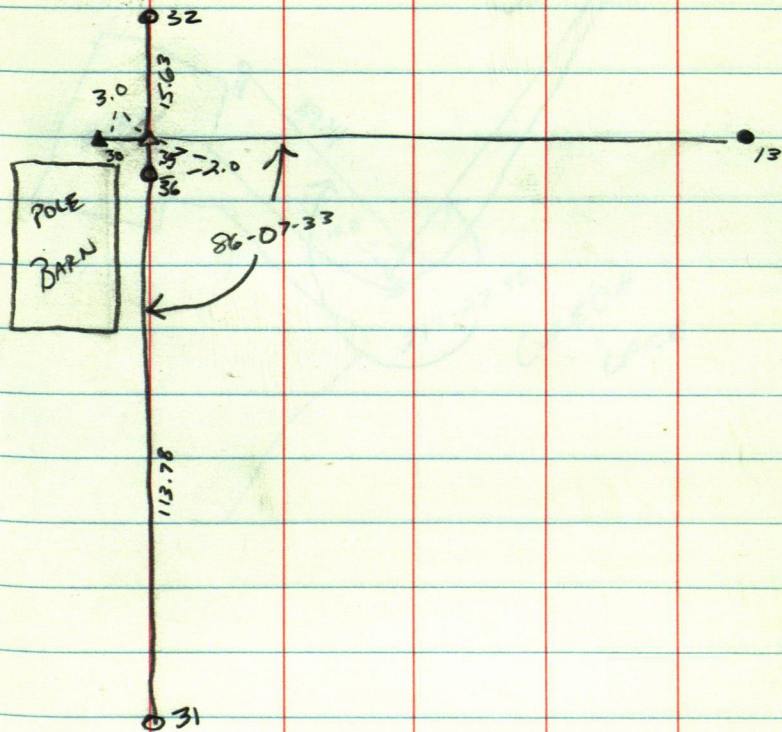 32
15.63
3.0
13
30
35
2.0
36
POLE
BARN
86-07-33
113.78
31